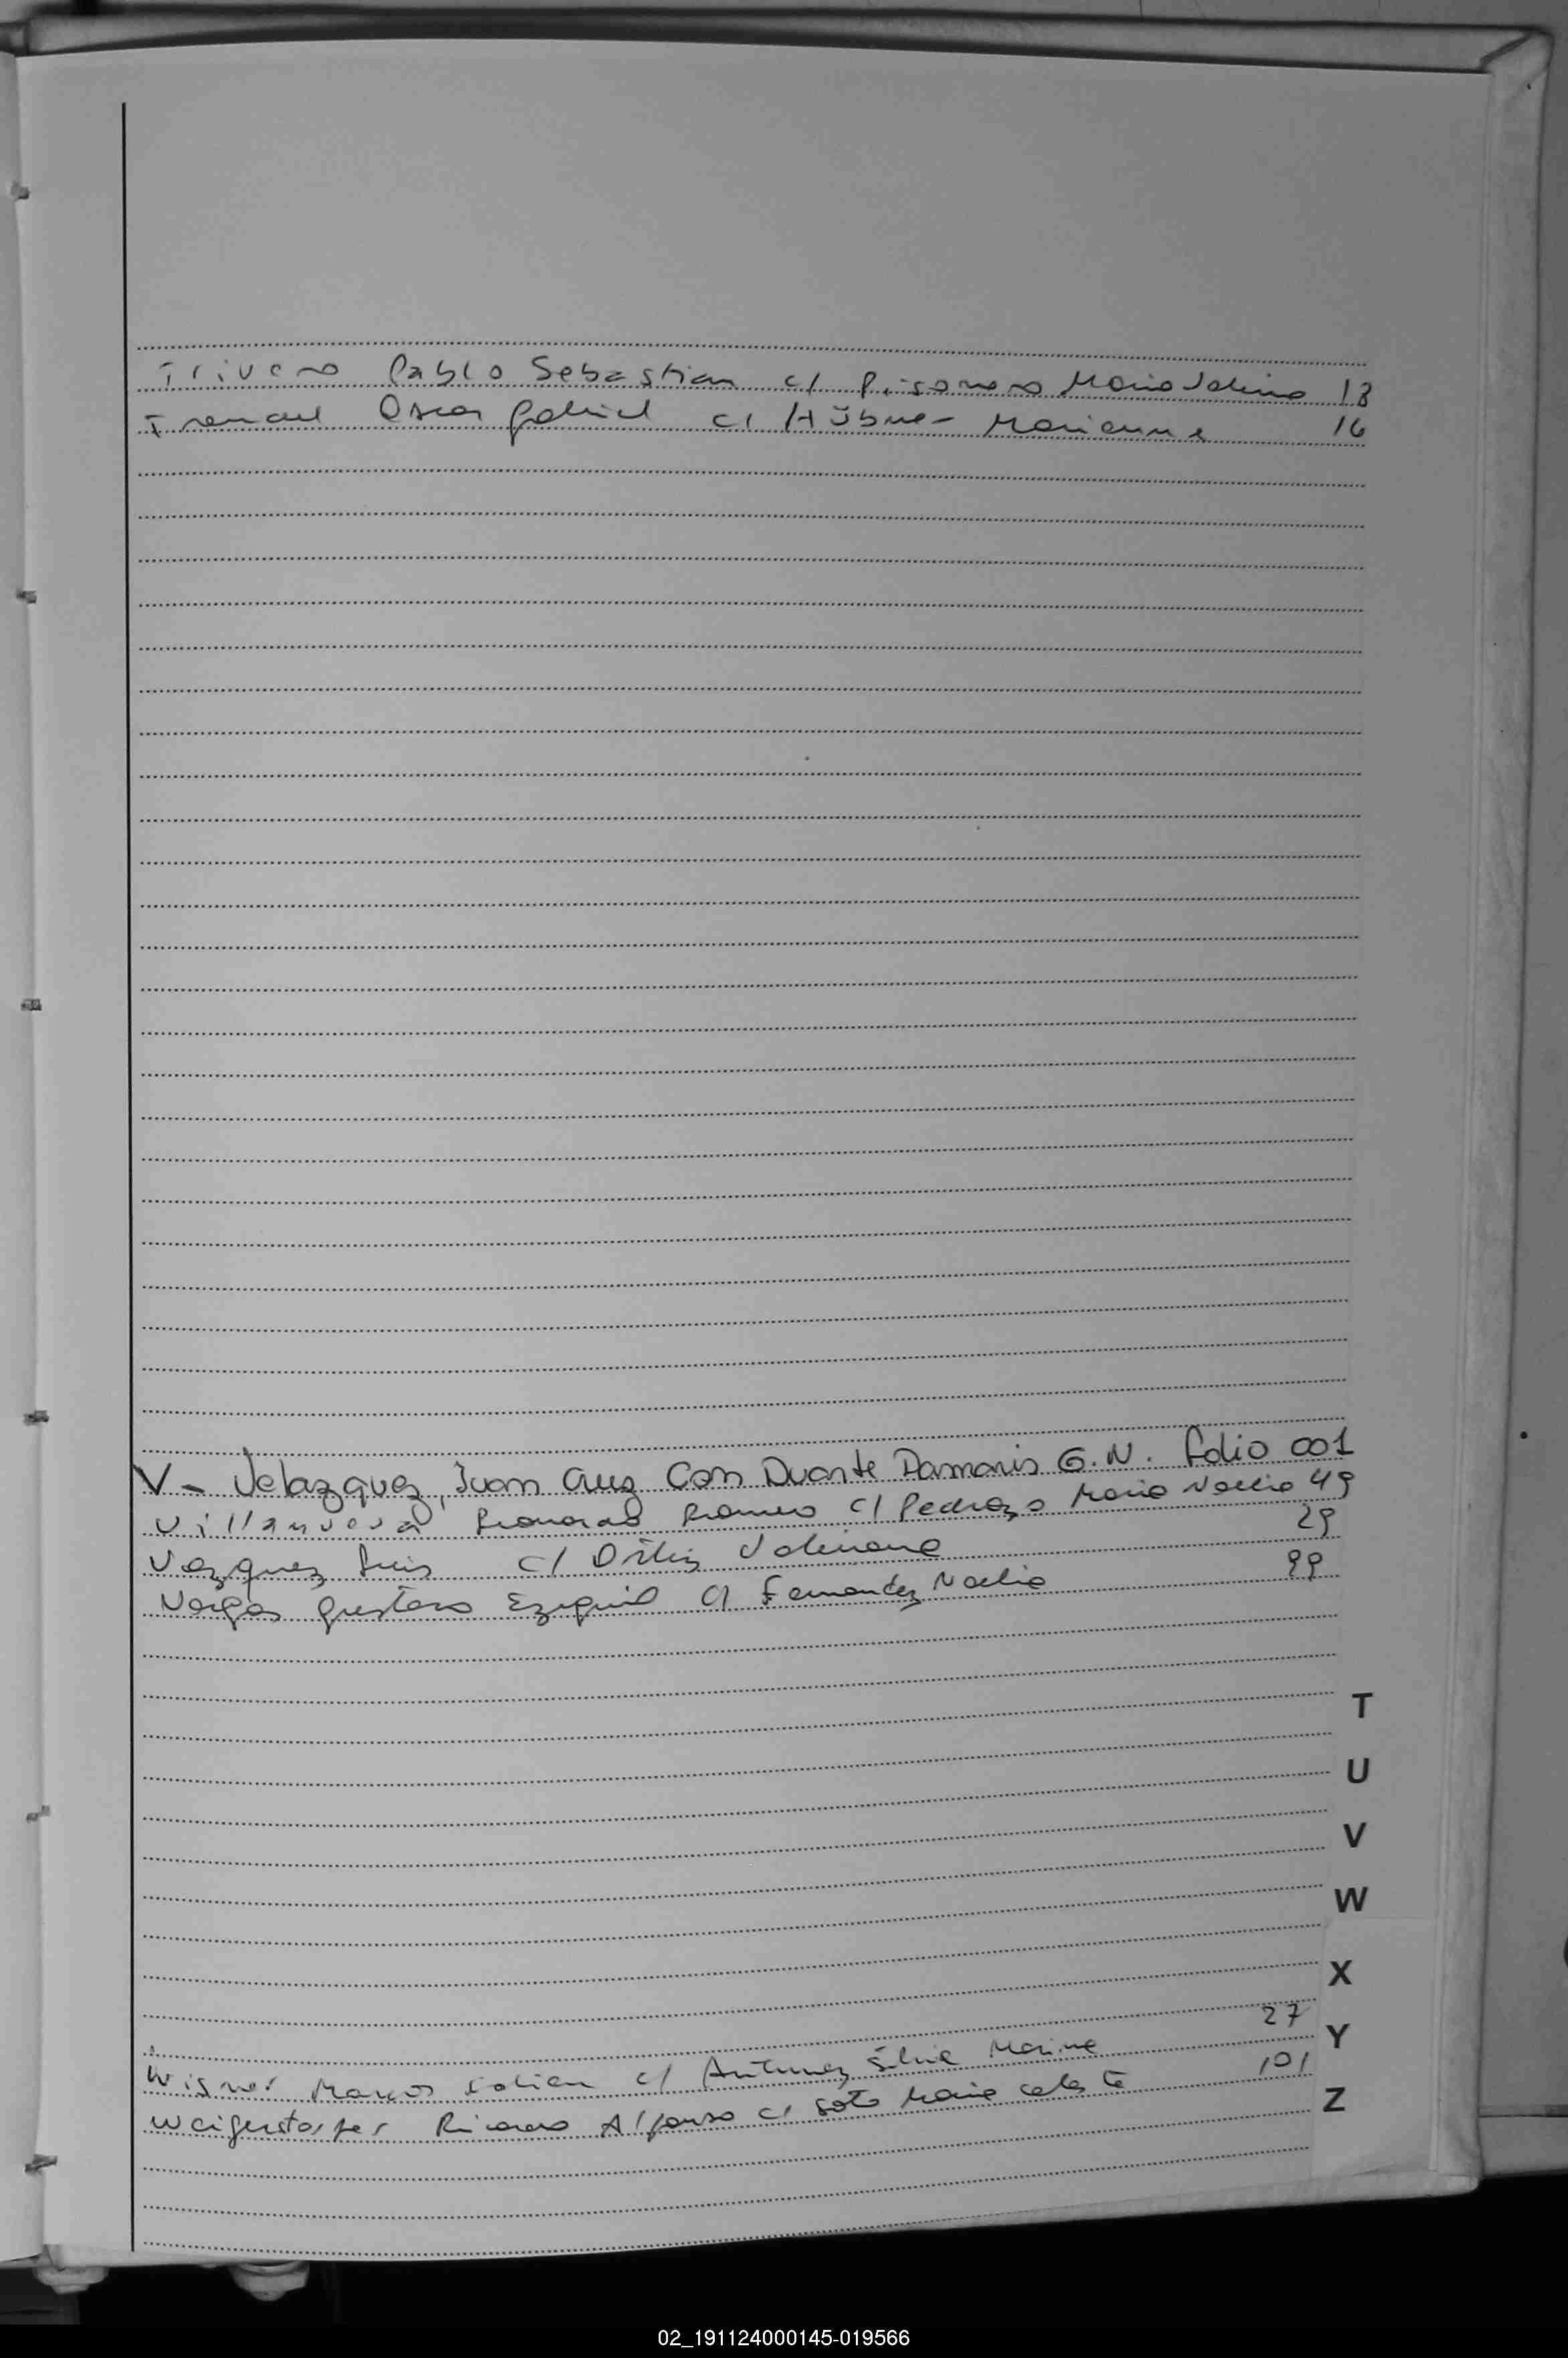 Trivero Pablo Sebastian c/ Maria 13
Oscar Gabriel c/ Hübner Marianne 16
V- Velazquez, Juan Cruz Con Duarte Damaris G.N. folio 001
Villanueva Romero c/ Pedrozo Maria Noelia 49
Vazquez Luis c/ Ortiz 29
Vargas Gustavo Ezequiel c/ Fernandez Noelia 99
T
U
V
W
X
27
Y
Wisner Marcos Fabian c/ Antunez Silvia Marina
101
Weigerstorfer Ricardo Alfonso c/ Soto Maria Celeste
Z
02_191124000145-019566